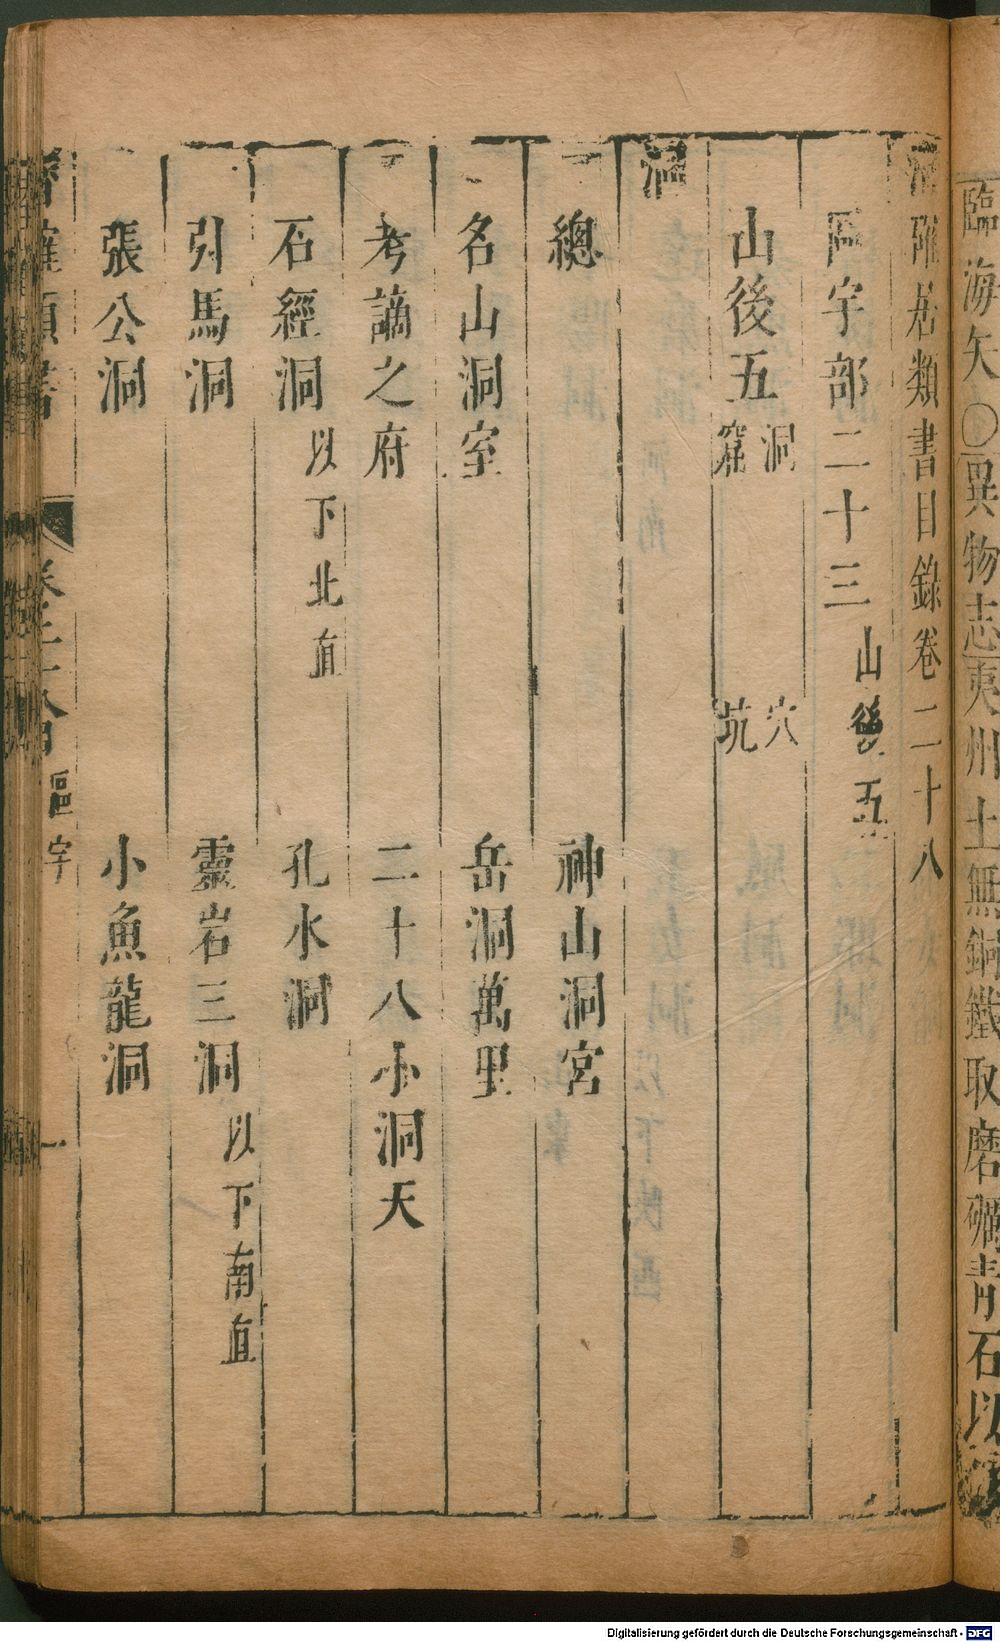 臨海矢〇異物志夷州土無銅鐵取磨礪青石以
潛確居類書目錄卷二十八
區宇部二十三 山後五
山後五 洞 窟 穴 坑
洞
總 神山洞宮
名山洞室 岳洞萬里
考謫之府 二十八小洞天
石經洞 以下北直 孔水洞
引馬洞 靈岩三洞 以下南直
張公洞 小魚龍洞
區宇 一
Digitalisierung gefördert durch die Deutsche Forschungsgemeinschaft - DFG